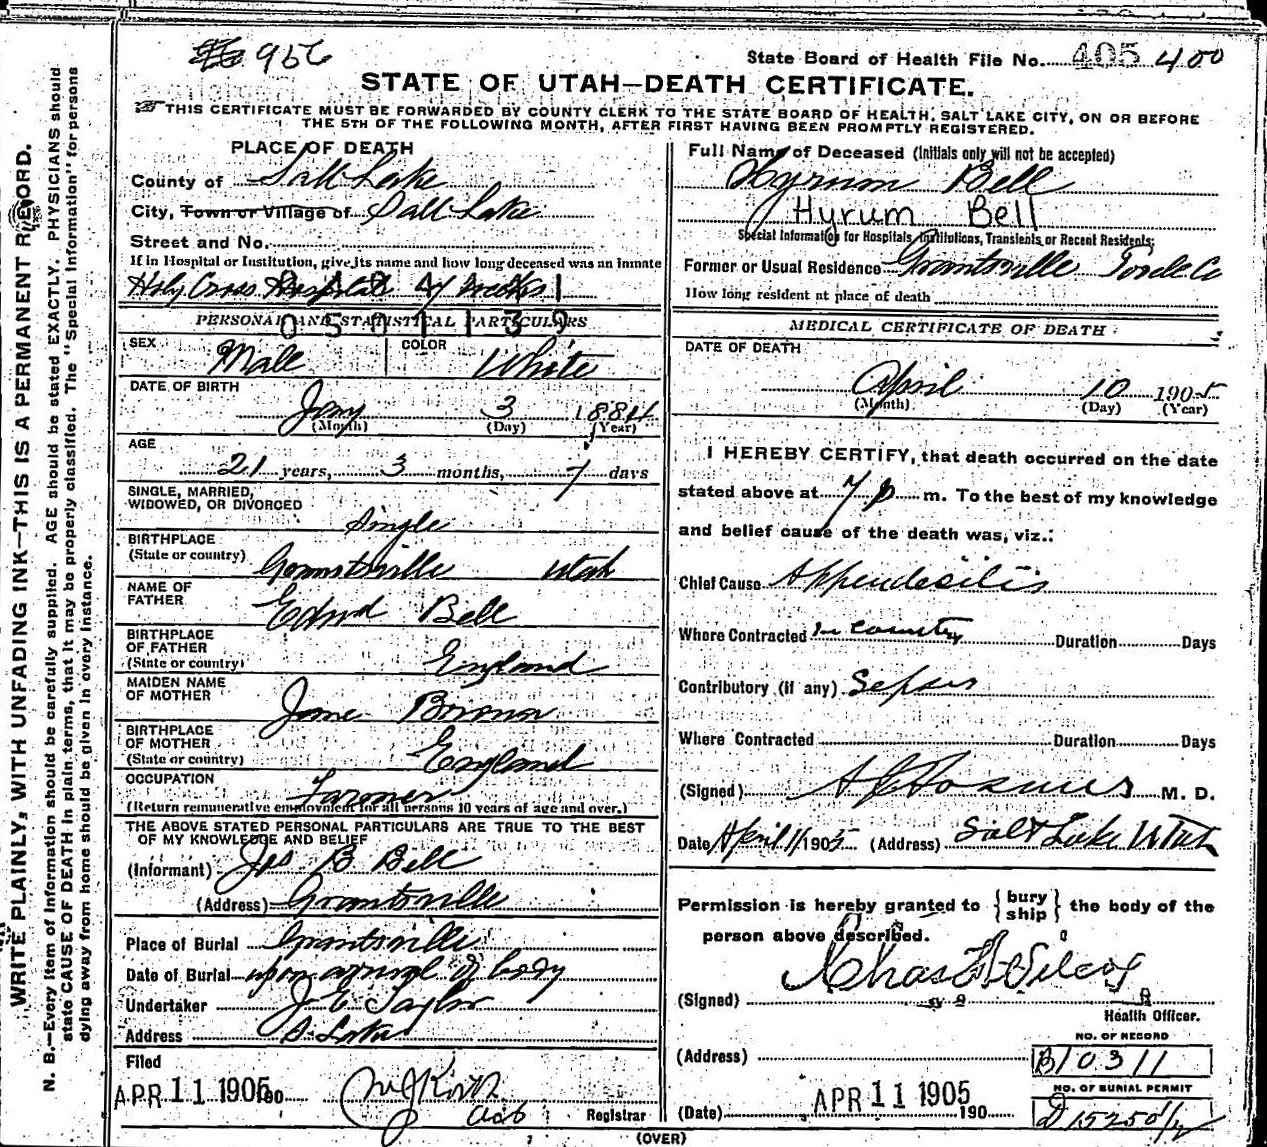 956
State Board of Health File No. 405 400
STATE OF UTAH—DEATH CERTIFICATE.
THIS CERTIFICATE MUST BE FORWARDED BY COUNTY CLERK TO THE STATE BOARD OF HEALTH, SALT LAKE CITY, ON OR BEFORE
THE 5TH OF THE FOLLOWING MONTH, AFTER FIRST HAVING BEEN PROMPTLY REGISTERED.
WRITE PLAINLY, WITH UNFADING INK—THIS IS A PERMANENT RECORD.
N. B.—Every item of information should be carefully supplied. AGE should be stated EXACTLY. PHYSICIANS should
state CAUSE OF DEATH in plain terms, that it may be properly classified. The "Special Information" for persons
dying away from home should be given in every instance.
PLACE OF DEATH
County of Salt Lake
City, Town or Village of Salt Lake
Street and No.
If in Hospital or Institution, give its name and how long deceased was an inmate
Holy Cross Hospital 4 weeks
PERSONAL AND STATISTICAL PARTICULARS
SEX Male COLOR White
DATE OF BIRTH
Jany 3 1884
(Month) (Day) (Year)
AGE
21 years, 3 months, 7 days
SINGLE, MARRIED,
WIDOWED, OR DIVORCED
Single
BIRTHPLACE
(State or country) Grantsville Utah
NAME OF
FATHER Edwd Bell
BIRTHPLACE
OF FATHER
(State or country) England
MAIDEN NAME
OF MOTHER Jane
BIRTHPLACE
OF MOTHER
(State or country) England
OCCUPATION Farmer
(Return remunerative employment for all persons 10 years of age and over.)
THE ABOVE STATED PERSONAL PARTICULARS ARE TRUE TO THE BEST
OF MY KNOWLEDGE AND BELIEF
(Informant) Jas B Bell
(Address) Grantsville
Place of Burial Grantsville
Date of Burial upon arrival of body
Undertaker J E Taylor
Address S. Lake
Filed
APR 11 1905 190
Registrar
Full Name of Deceased (Initials only will not be accepted)
Hyrum Bell
Hyrum Bell
Special Information for Hospitals, Institutions, Transients or Recent Residents:
Former or Usual Residence Grantsville Tooele Co
How long resident at place of death
MEDICAL CERTIFICATE OF DEATH
DATE OF DEATH
April 10 1905
(Month) (Day) (Year)
I HEREBY CERTIFY, that death occurred on the date
stated above at 7 p m. To the best of my knowledge
and belief cause of the death was, viz.:
Chief Cause Appendesitis
Where Contracted In country Duration Days
Contributory (if any) Sepsis
Where Contracted Duration Days
(Signed) M. D.
Date April 11 1905 (Address) Salt Lake Utah
Permission is hereby granted to {bury
ship} the body of the
person above described.
(Signed) Chas F Wilcox
Health Officer.
(Address)
NO. OF RECORD
B10311
NO. OF BURIAL PERMIT
D 15250 1/2
(Date) APR 11 1905 190
(OVER)